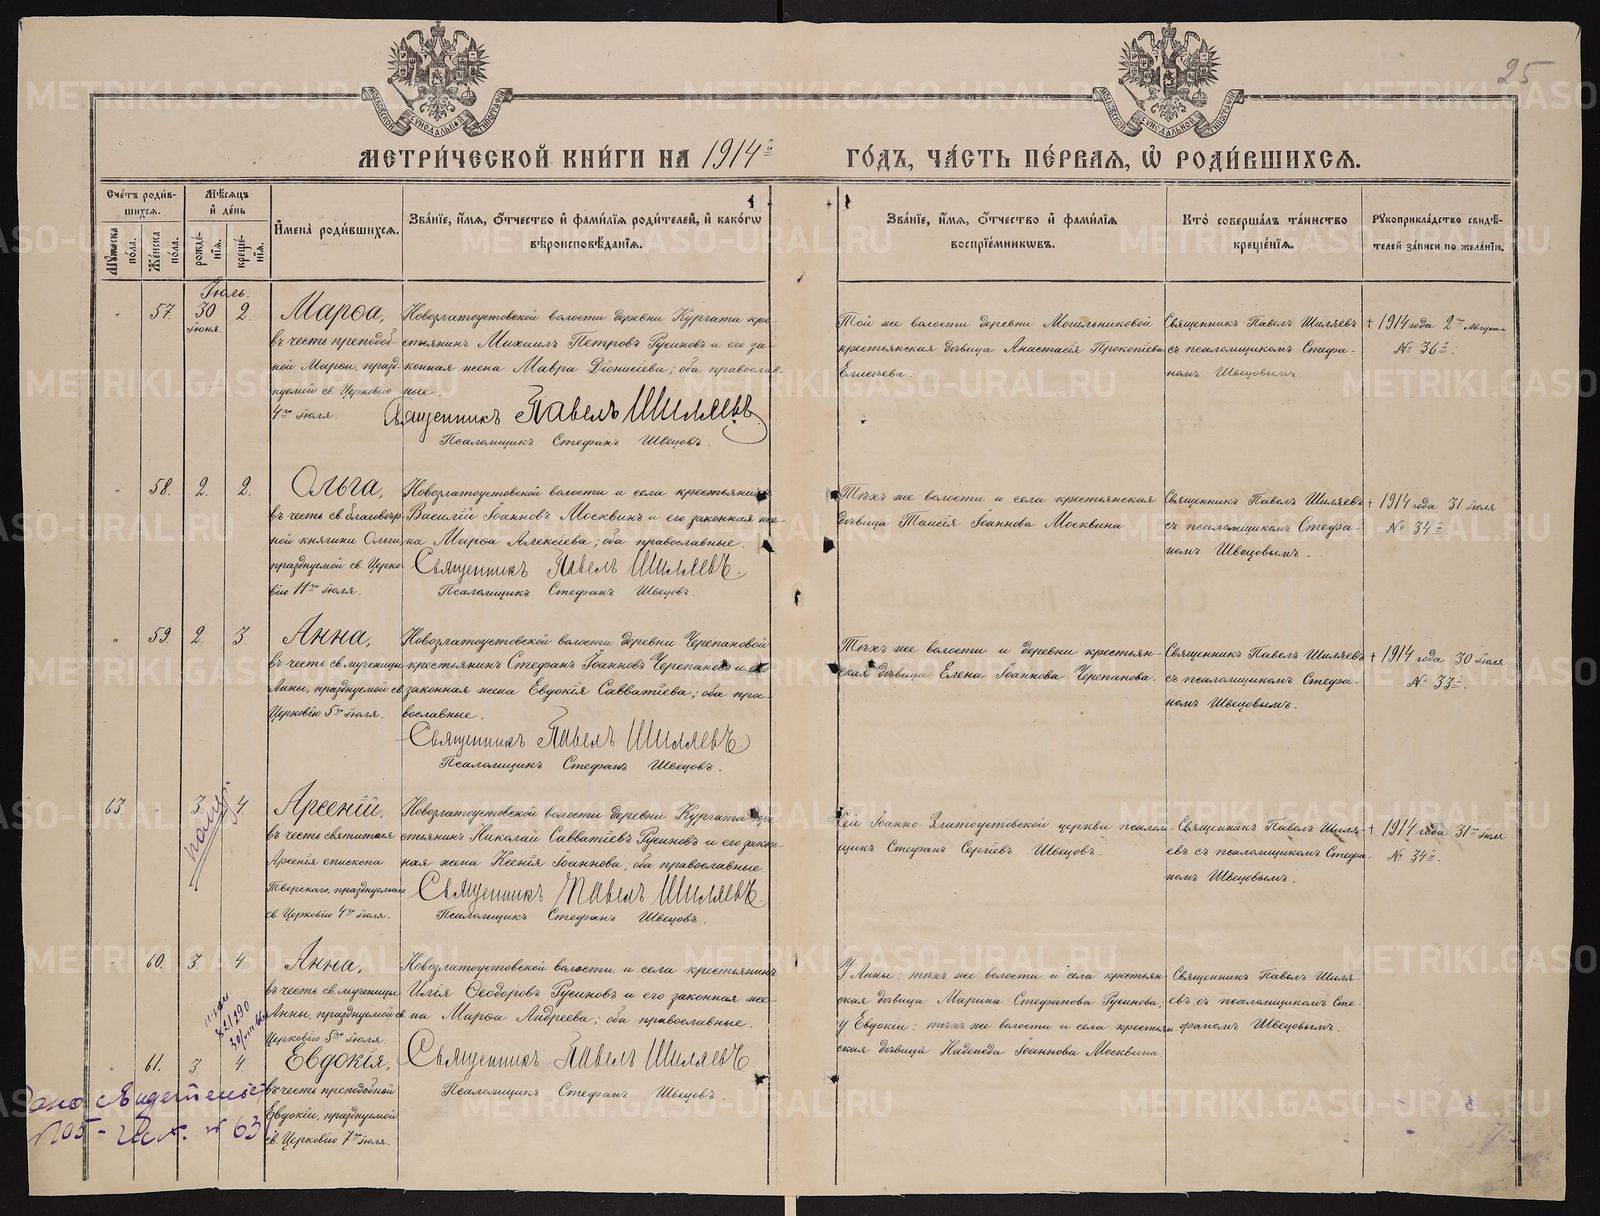 25
МЕТРИ́ЧЕСКОЙ КНИ́ГИ НА 1914й ГО́ДЪ, ЧА́СТЬ ПЕ́РВАЯ, Ѡ҆ РОДИ́ВШИХСЯ.
Сче́тъ роди́в-
шихся.
Му́жеска по́ла.
Же́нска по́ла.
Мѣ́сяцъ
и҆ де́нь
рожде́-
нїя.
креще́-
нїя.
И҆мена̀ роди́вшихся.
Зва́нїе, и҆́мя, ѻ҆́тчество и҆ фами́лїя роди́телей, и҆ како́гѡ
вѣроисповѣ́данїя.
Зва́нїе, и҆́мя, ѻ҆́тчество и҆ фами́лїя
воспрїе́мникѡвъ.
Кто̀ соверша́лъ та́инство
креще́нїя.
Рꙋкоприкла́дство свидѣ́-
телей за́писи по жела́нїю.
Іюль.
" 57. 30 2.
Іюня.
Марѳа,
въ честь преподоб-
ной Марѳы, празд-
нуемой св. Церковію
4го Іюля.
Новозлатоустовской волости деревни Кургата кре-
стьянинъ Михаилъ Петровъ Русиновъ и его за-
конная жена Мавра Діонисіева; оба православ-
ные.
Священникъ Павелъ Шиляевъ
Псаломщикъ Стефанъ Швецовъ.
Той же волости деревни Могильниковой
крестьянская дѣвица Анастасія Прокопіева
Елисѣева.
Священникъ Павелъ Шиляевъ
съ псаломщикомъ Стефа-
номъ Швецовымъ.
+ 1914 года 2го Августа
№ 36й.
" 58. 2. 2.
Ольга,
въ честь св. благовѣр-
ной княгини Ольги,
празднуемой св. Церко-
вію 11го Іюля.
Новозлатоустовской волости и села крестьянинъ
Василій Іоанновъ Москвинъ и его законная же-
на Марѳа Алексіева; оба православные.
Священникъ Павелъ Шиляевъ.
Псаломщикъ Стефанъ Швецовъ.
Тѣхъ же волости и села крестьянская
дѣвица Таисія Іоаннова Москвина
Священникъ Павелъ Шиляевъ
съ псаломщикомъ Стефа-
номъ Швецовымъ.
+ 1914 года 31 Іюля
№ 34й.
" 59. 2. 3
Анна,
въ честь св. мученицы
Анны, празднуемой св.
Церковію 5го Іюля.
Новозлатоустовской волости деревни Черепановой
крестьянинъ Стефанъ Іоанновъ Черепановъ и его
законная жена Евдокія Савватіева; оба пра-
вославные.
Священникъ Павелъ Шиляевъ
Псаломщикъ Стефанъ Швецовъ.
Тѣхъ же волости и деревни крестьян-
ская дѣвица Елена Іоаннова Черепанова.
Священникъ Павелъ Шиляевъ
съ псаломщикомъ Стефа-
номъ Швецовымъ.
+ 1914 года 30 Іюля
№ 33й.
63. " 3. 4.
Арсеній,
въ честь святителя
Арсенія епископа
Тверскаго, празднуемаго
св. Церковію 4го Іюля.
Новозлатоустовской волости деревни Кургата кре-
стьянинъ Николай Савватіевъ Русиновъ и его закон-
ная жена Ксенія Іоаннова, оба православные.
Священникъ Павелъ Шиляевъ.
Псаломщикъ Стефанъ Швецовъ.
Сей Іоанно-Златоустовской церкви псалом-
щикъ Стефанъ Сергіевъ Швецовъ.
Священникъ Павелъ Шиля-
евъ съ псаломщикомъ Стефа-
номъ Швецовымъ.
+ 1914 года 31го Іюля
№ 34й.
" 60. 3. 4
Анна,
въ честь св. мученицы
Анны, празднуемой св.
Церковію 5го Іюля.
Новозлатоустовской волости и села крестьянинъ
Илія Ѳеодоровъ Русиновъ и его законная же-
на Марѳа Андреева; оба православные.
Священникъ Павелъ Шиляевъ
Псаломщикъ Стефанъ Швецовъ.
У Анны: тѣхъ же волости и села крестьян-
ская дѣвица Марина Стефанова Русинова,
у Евдокіи: тѣхъ же волости и села крестьян-
ская дѣвица Надежда Іоаннова Москвина
Священникъ Павелъ Шиля-
евъ съ псаломщикомъ Сте-
фаномъ Швецовымъ.
" 61. 3. 4.
Евдокія,
въ честь преподобной
Евдокіи, празднуемой
св. Церковію 7го Іюля.
METRIKI.GASO-URAL.RU